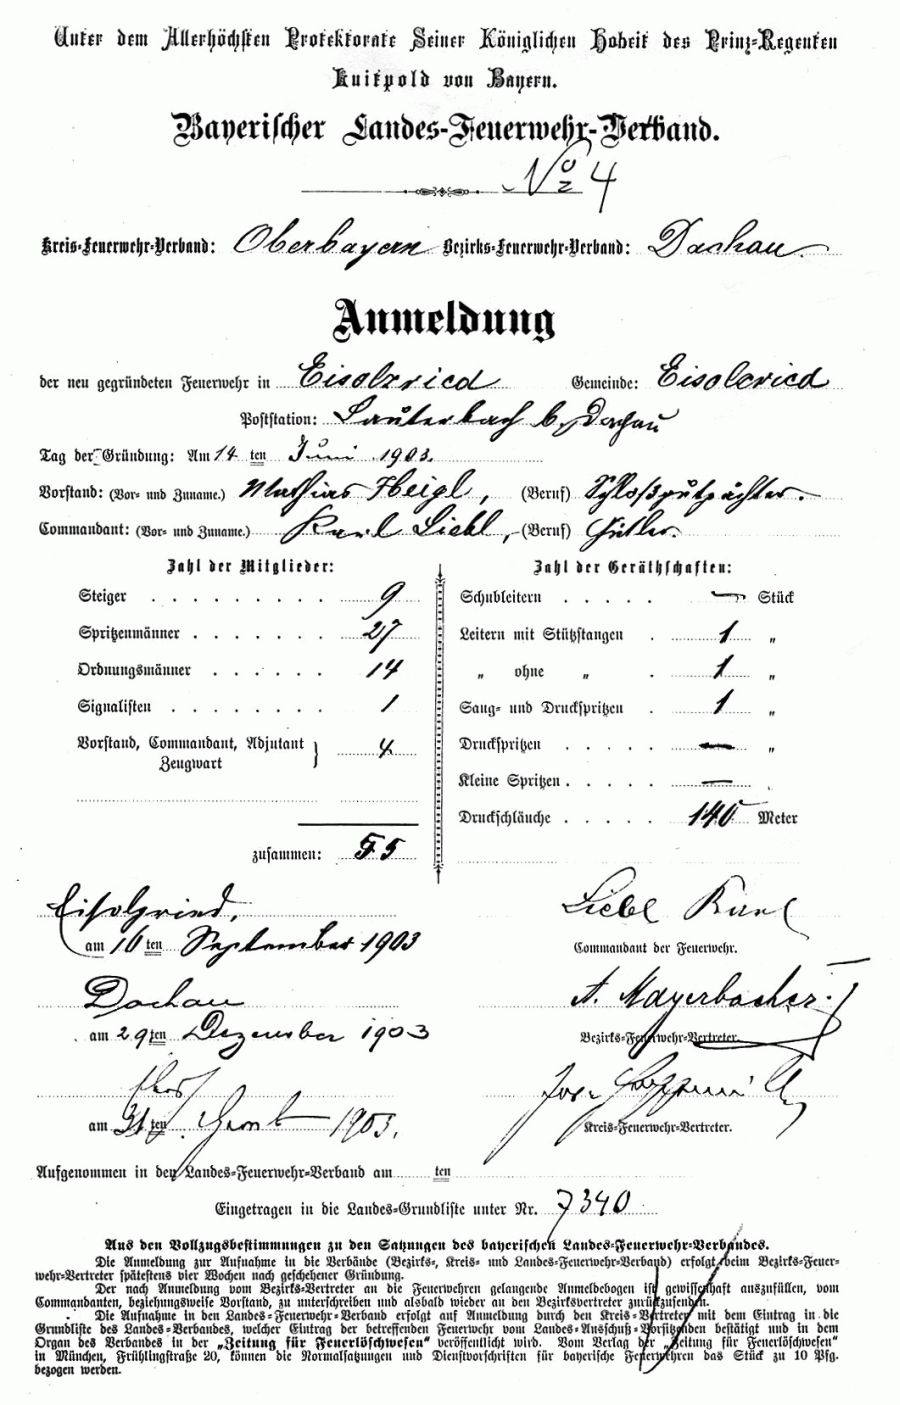 Unter dem Allerhöchsten Protektorate Seiner Königlichen Hoheit des Prinz-Regenten
Luitpold von Bayern.
Bayerischer Landes-Feuerwehr-Verband.
No 4
Kreis-Feuerwehr-Verband: Oberbayern Bezirks-Feuerwehr-Verband: Dachau.
Anmeldung
der neu gegründeten Feuerwehr in Eisolzried Gemeinde: Eisolzried
Poststation: Lauterbach b. Dachau
Tag der Gründung: Am 14 ten Juni 1903.
Vorstand: (Vor- und Zuname.) Mathias Heigl, (Beruf) Schloßgutpächter.
Commandant: (Vor- und Zuname.) Karl Liebl, (Beruf) Gütler.
Zahl der Mitglieder: Zahl der Geräthschaften:
Steiger . . . . . . . . . 9 Schubleitern . . . . . — Stück
Spritzenmänner . . . . . . . 27 Leitern mit Stützstangen . 1 „
Ordnungsmänner . . . . . . 14 „ ohne „ . 1 „
Signalisten . . . . . . . . 1 Saug- und Druckspritzen . 1 „
Vorstand, Commandant, Adjutant } 4 Druckspritzen . . . . . — „
Zeugwart Kleine Spritzen . . . . . —
Druckschläuche . . . . . 140 Meter
zusammen: 55
Eisolzried, Liebl Karl
am 16 ten September 1903 Commandant der Feuerwehr.
Dachau A. Mayerbacher.
am 29 ten Dezember 1903 Bezirks-Feuerwehr-Vertreter.
Jos.
am 31 ten 1903. Kreis-Feuerwehr-Vertreter.
Aufgenommen in den Landes-Feuerwehr-Verband am ten
Eingetragen in die Landes-Grundliste unter Nr. 7340
Aus den Vollzugsbestimmungen zu den Satzungen des bayerischen Landes-Feuerwehr-Verbandes.
Die Anmeldung zur Aufnahme in die Verbände (Bezirks-, Kreis- und Landes-Feuerwehr-Verband) erfolgt beim Bezirks-Feuer-
wehr-Vertreter spätestens vier Wochen nach geschehener Gründung.
Der nach Anmeldung vom Bezirks-Vertreter an die Feuerwehren gelangende Anmeldebogen ist gewissenhaft auszufüllen, vom
Commandanten, beziehungsweise Vorstand, zu unterschreiben und alsbald wieder an den Bezirksvertreter zurückzusenden.
Die Aufnahme in den Landes-Feuerwehr-Verband erfolgt auf Anmeldung durch den Kreis-Vertreter mit dem Eintrag in die
Grundliste des Landes-Verbandes, welcher Eintrag der betreffenden Feuerwehr vom Landes-Ausschuß-Vorsitzenden bestätigt und in dem
Organ des Verbandes in der „Zeitung für Feuerlöschwesen“ veröffentlicht wird. Vom Verlag der „Zeitung für Feuerlöschwesen“
in München, Frühlingstraße 20, können die Normalsatzungen und Dienstvorschriften für bayerische Feuerwehren das Stück zu 10 Pfg.
bezogen werden.